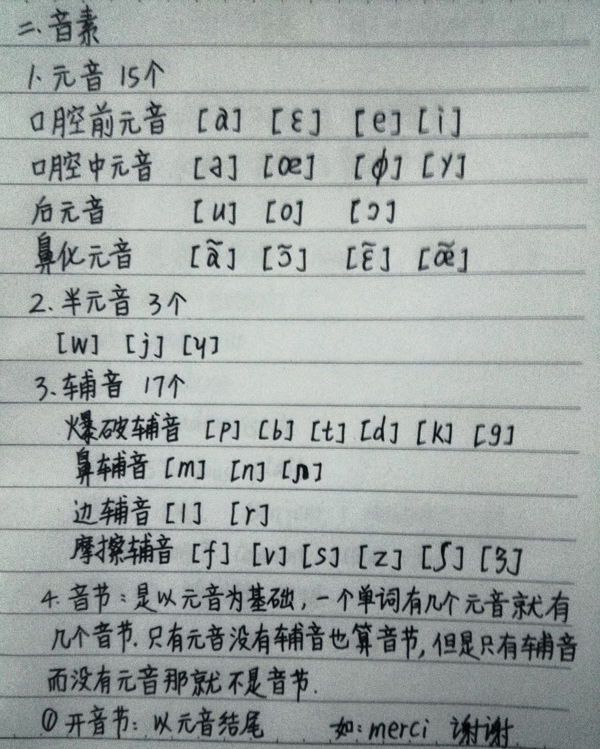 二、音素
1、元音 15个
口腔前元音 [a] [ɛ] [e] [i]
口腔中元音 [ə] [œ] [ϕ] [y]
后元音 [u] [o] [ɔ]
鼻化元音 [ã] [ɔ̃] [ɛ̃] [œ̃]
2. 半元音 3个
[w] [j] [ɥ]
3. 辅音 17个
爆破辅音 [p] [b] [t] [d] [k] [g]
鼻辅音 [m] [n] [ɲ]
边辅音 [l] [r]
摩擦辅音 [f] [v] [s] [z] [ʃ] [ʒ]
4. 音节：是以元音为基础，一个单词有几个元音就有
几个音节. 只有元音没有辅音也算音节, 但是只有辅音
而没有元音那就不是音节.
① 开音节: 以元音结尾 如: merci 谢谢